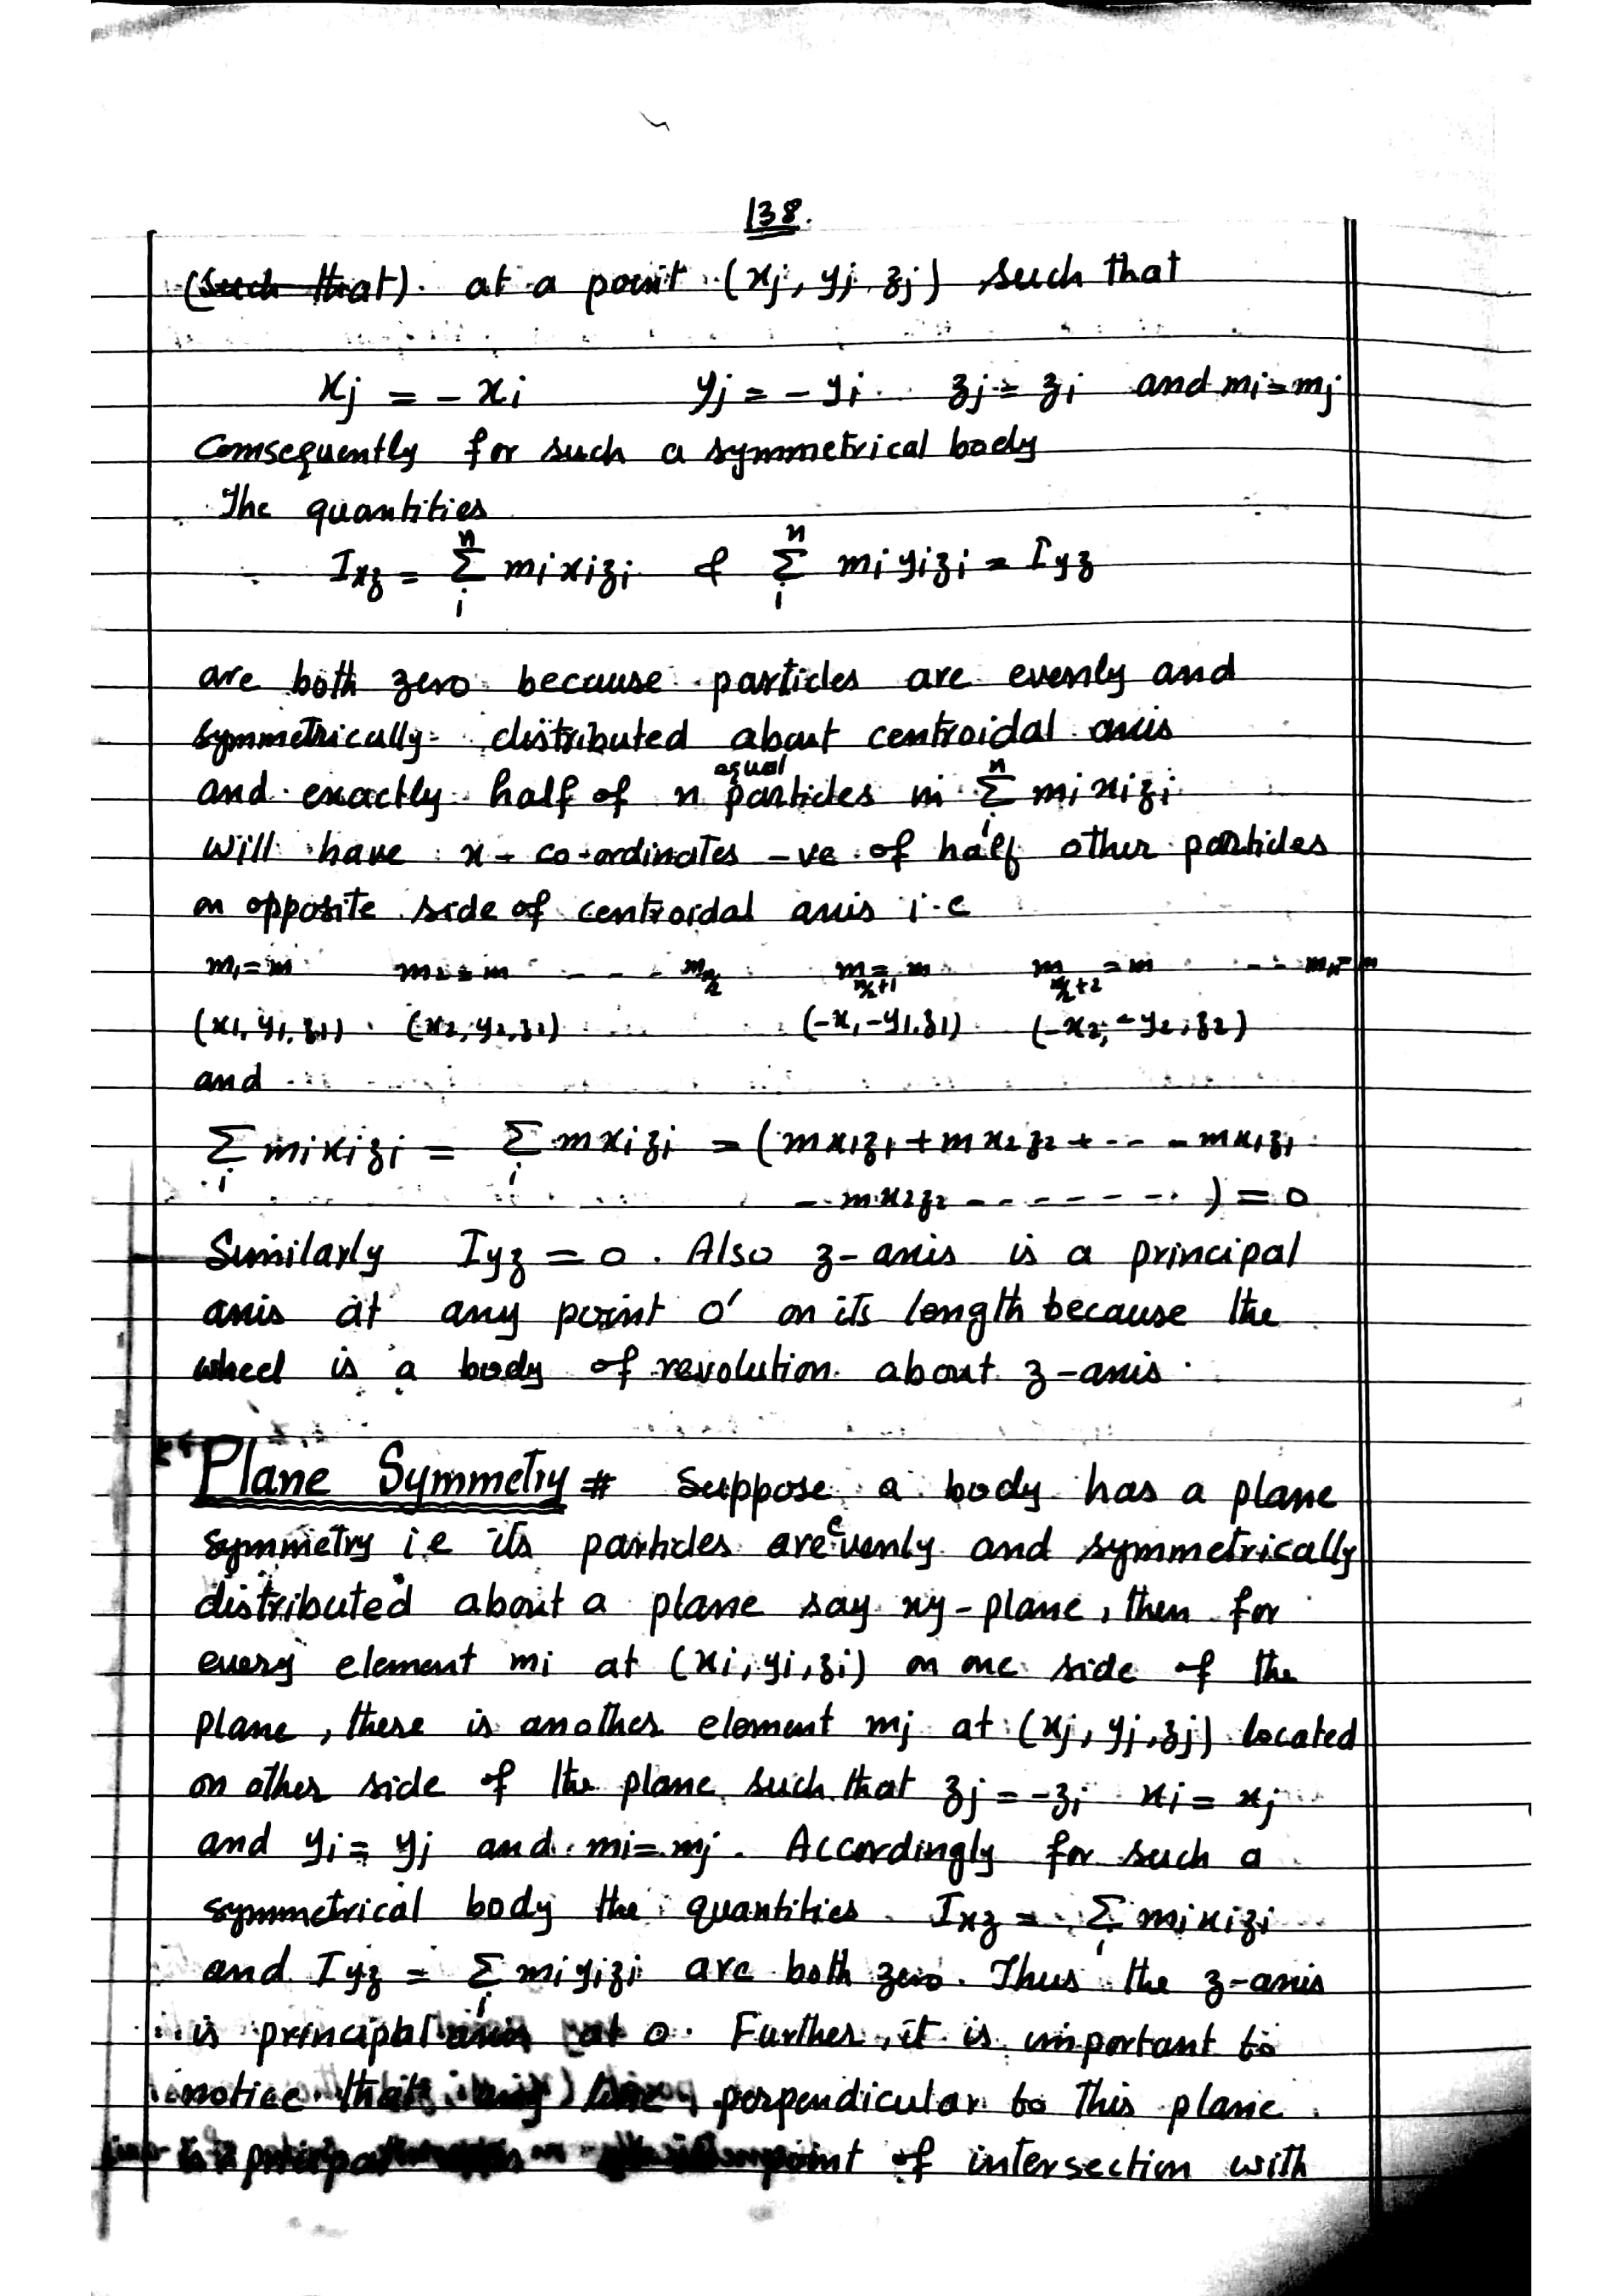 138.
(such that). at a point (xj, yj, zj) such that
xj = - xi yj = - yi. zj = zi and mi = mj
Comsequently for such a symmetrical body
The quantities
Ixz = Σ_i^n mi xi zi & Σ_i^n mi yi zi = Iyz
are both zero because particles are evenly and
symmetrically distributed about centroidal axis
and exactly half of n equal particles in Σ_i^n mi xi zi
will have x - co-ordinates -ve of half other particles
on opposite side of centroidal axis i.e
m1 = m m2 = m - - - m n/2 m n/2+1 = m m n/2+2 = m - - mn = m
(x1, y1, z1) . (x2, y2, z2) ... (-x1, -y1, z1) (-x2, -y2, z2)
and
Σ_i mi xi zi = Σ_i m xi zi = (m x1 z1 + m x2 z2 + - - - m x1 z1
- m x2 z2 - - - - - - - ) = 0
Similarly Iyz = 0 . Also z-axis is a principal
axis at any point O' on its length because the
wheel is a body of revolution about z-axis.
Plane Symmetry # Suppose a body has a plane
symmetry i.e its particles are evenly and symmetrically
distributed about a plane say xy-plane, then for
every element mi at (xi, yi, zi) on one side of the
plane, there is another element mj at (xj, yj, zj) located
on other side of the plane such that zj = -zi xi = xj
and yi = yj and mi = mj. Accordingly for such a
symmetrical body the quantities Ixz = Σ_i mi xi zi
and Iyz = Σ_i mi yi zi are both zero. Thus the z-axis
is principal axis at O. Further, it is important to
notice that any line perpendicular to this plane
is a principal point of intersection with